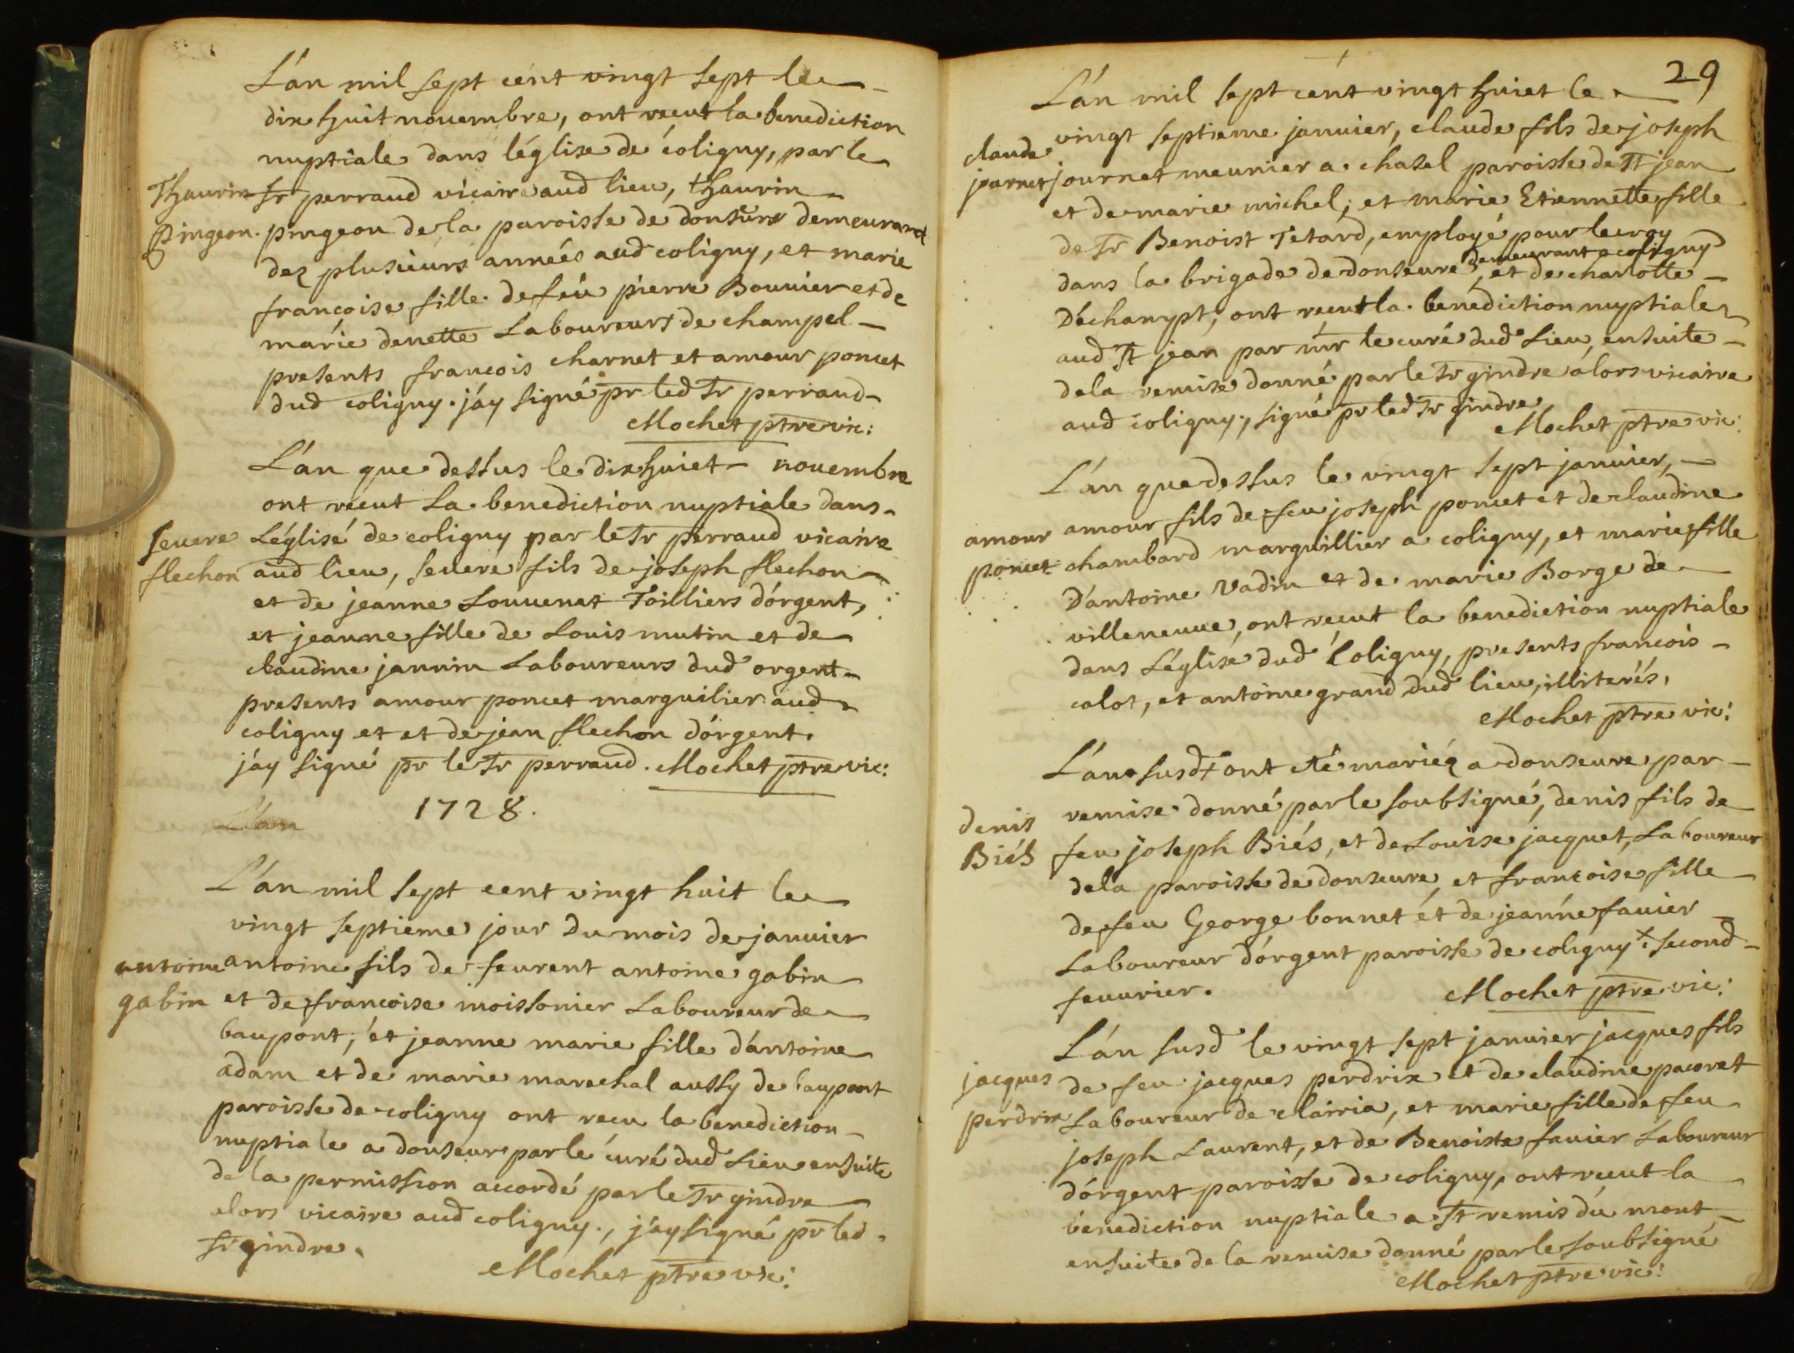 L'an mil sept cent vingt sept le
dix huit novembre, ont recut la benediction
nuptiale dans léglise de coligny, par le
Thaurin Sr perraud vicaire aud lieu, thaurin
pingeon. pingeon de la paroisse de donsure demeurant
dez plusieurs années aud coligny, et marie
françoise fille de feu pierre Bouvier et de
márie denette Laboureurs de champel
presents françois charnet et amour poncet
dud coligny. jáy signé pr led Sr perraud
Mochet ptre vic:
L'an que dessus le dix huiet novembre
ont recut La benediction nuptiale dans
severe Léglisé de coligny par le Sr perraud vicaire
flechon aud lieu, severe fils de joseph flechon
et de jeanne Louvenet Toilliers dórgent,
et jeanne fille de Louis mutin et de
claudine jannin Laboureurs dud orgent
presents amour poncet marguilier aud
coligny et et de jean flechon dórgent.
jáy signé pr le Sr perraud. Mochet ptre vic:
L'an 1728.
L'an mil sept cent vingt huit le
vingt septieme jour du mois de janvier
antoine antoine fils de feurent antoine gabin
gabin et de françoise moissonier Laboureur de
baupont; ét jeanne marie fille dántoine
adam et de marie marechal aussy de baupont
paroisse de coligny ont recu la benediction
nuptiale a donseur par lé curé dud Lieu ensuite
de la permission accordé par le Sr gindre
alors vicaire aud coligny., jáy signé pr led
Sr gindre.
Mochet ptre vic:
29
L'án mil sept cént vingt huiet le
vingt septieme janvier, claude fils de joseph
claude
jornet journet meunier a chasel paroisse de St jean
et de marie michel; et marie Etiennette fille
de Sr Benoist Tetard, employé pour le roy
dans la brigade de donseure demeurant a coligny, et de charlotte
Déchanypt, ont recut la benédiction nuptiale
aud St jean par mr le curé dud Lieu, ensuite
de la remise donné par le Sr gindre alors vicaire
aud coligny., signé pr led Sr gindre
Mochet ptre vic:
L'án que dessus le vingt sept janvier,
amour amour fils de feu joseph poncet et de claudine
poncet chambard marguillier a coligny, et marie fille
D'antoine Vadin et de marie Borge de
villeneuve, ont recut la benediction nuptiale
dans Léglise dud Coligny, presents francois
calot, et antoine grand dud lieu, illiterés.
Mochet ptre vic:
L'án susdt ont eté mariéz a donseure par
denis remise donné par le soubsigné, denis fils de
Biés feu joseph Biés, et de Louise jacquet, Laboureur
de la paroisse de donseure, et françoise fille
de feu George bonnet ét de jeanne favier
Laboureur dórgent paroisse de coligny.× second
fevvrier.
Mochet ptre vic:
L'án susd le vingt sept janvier jacques fils
jacques de feu jacques perdrix et de claudine pacoret
perdrix Laboureur de clairia, et marie fille de feu
joseph Laurent, et de Benoiste favier Laboureur
dórgent paroisse de coligny, ont recut la
bénediction nuptiale a St remis du mont
ensuite de la remise donné par le soubsigné
Mochet ptre vic: